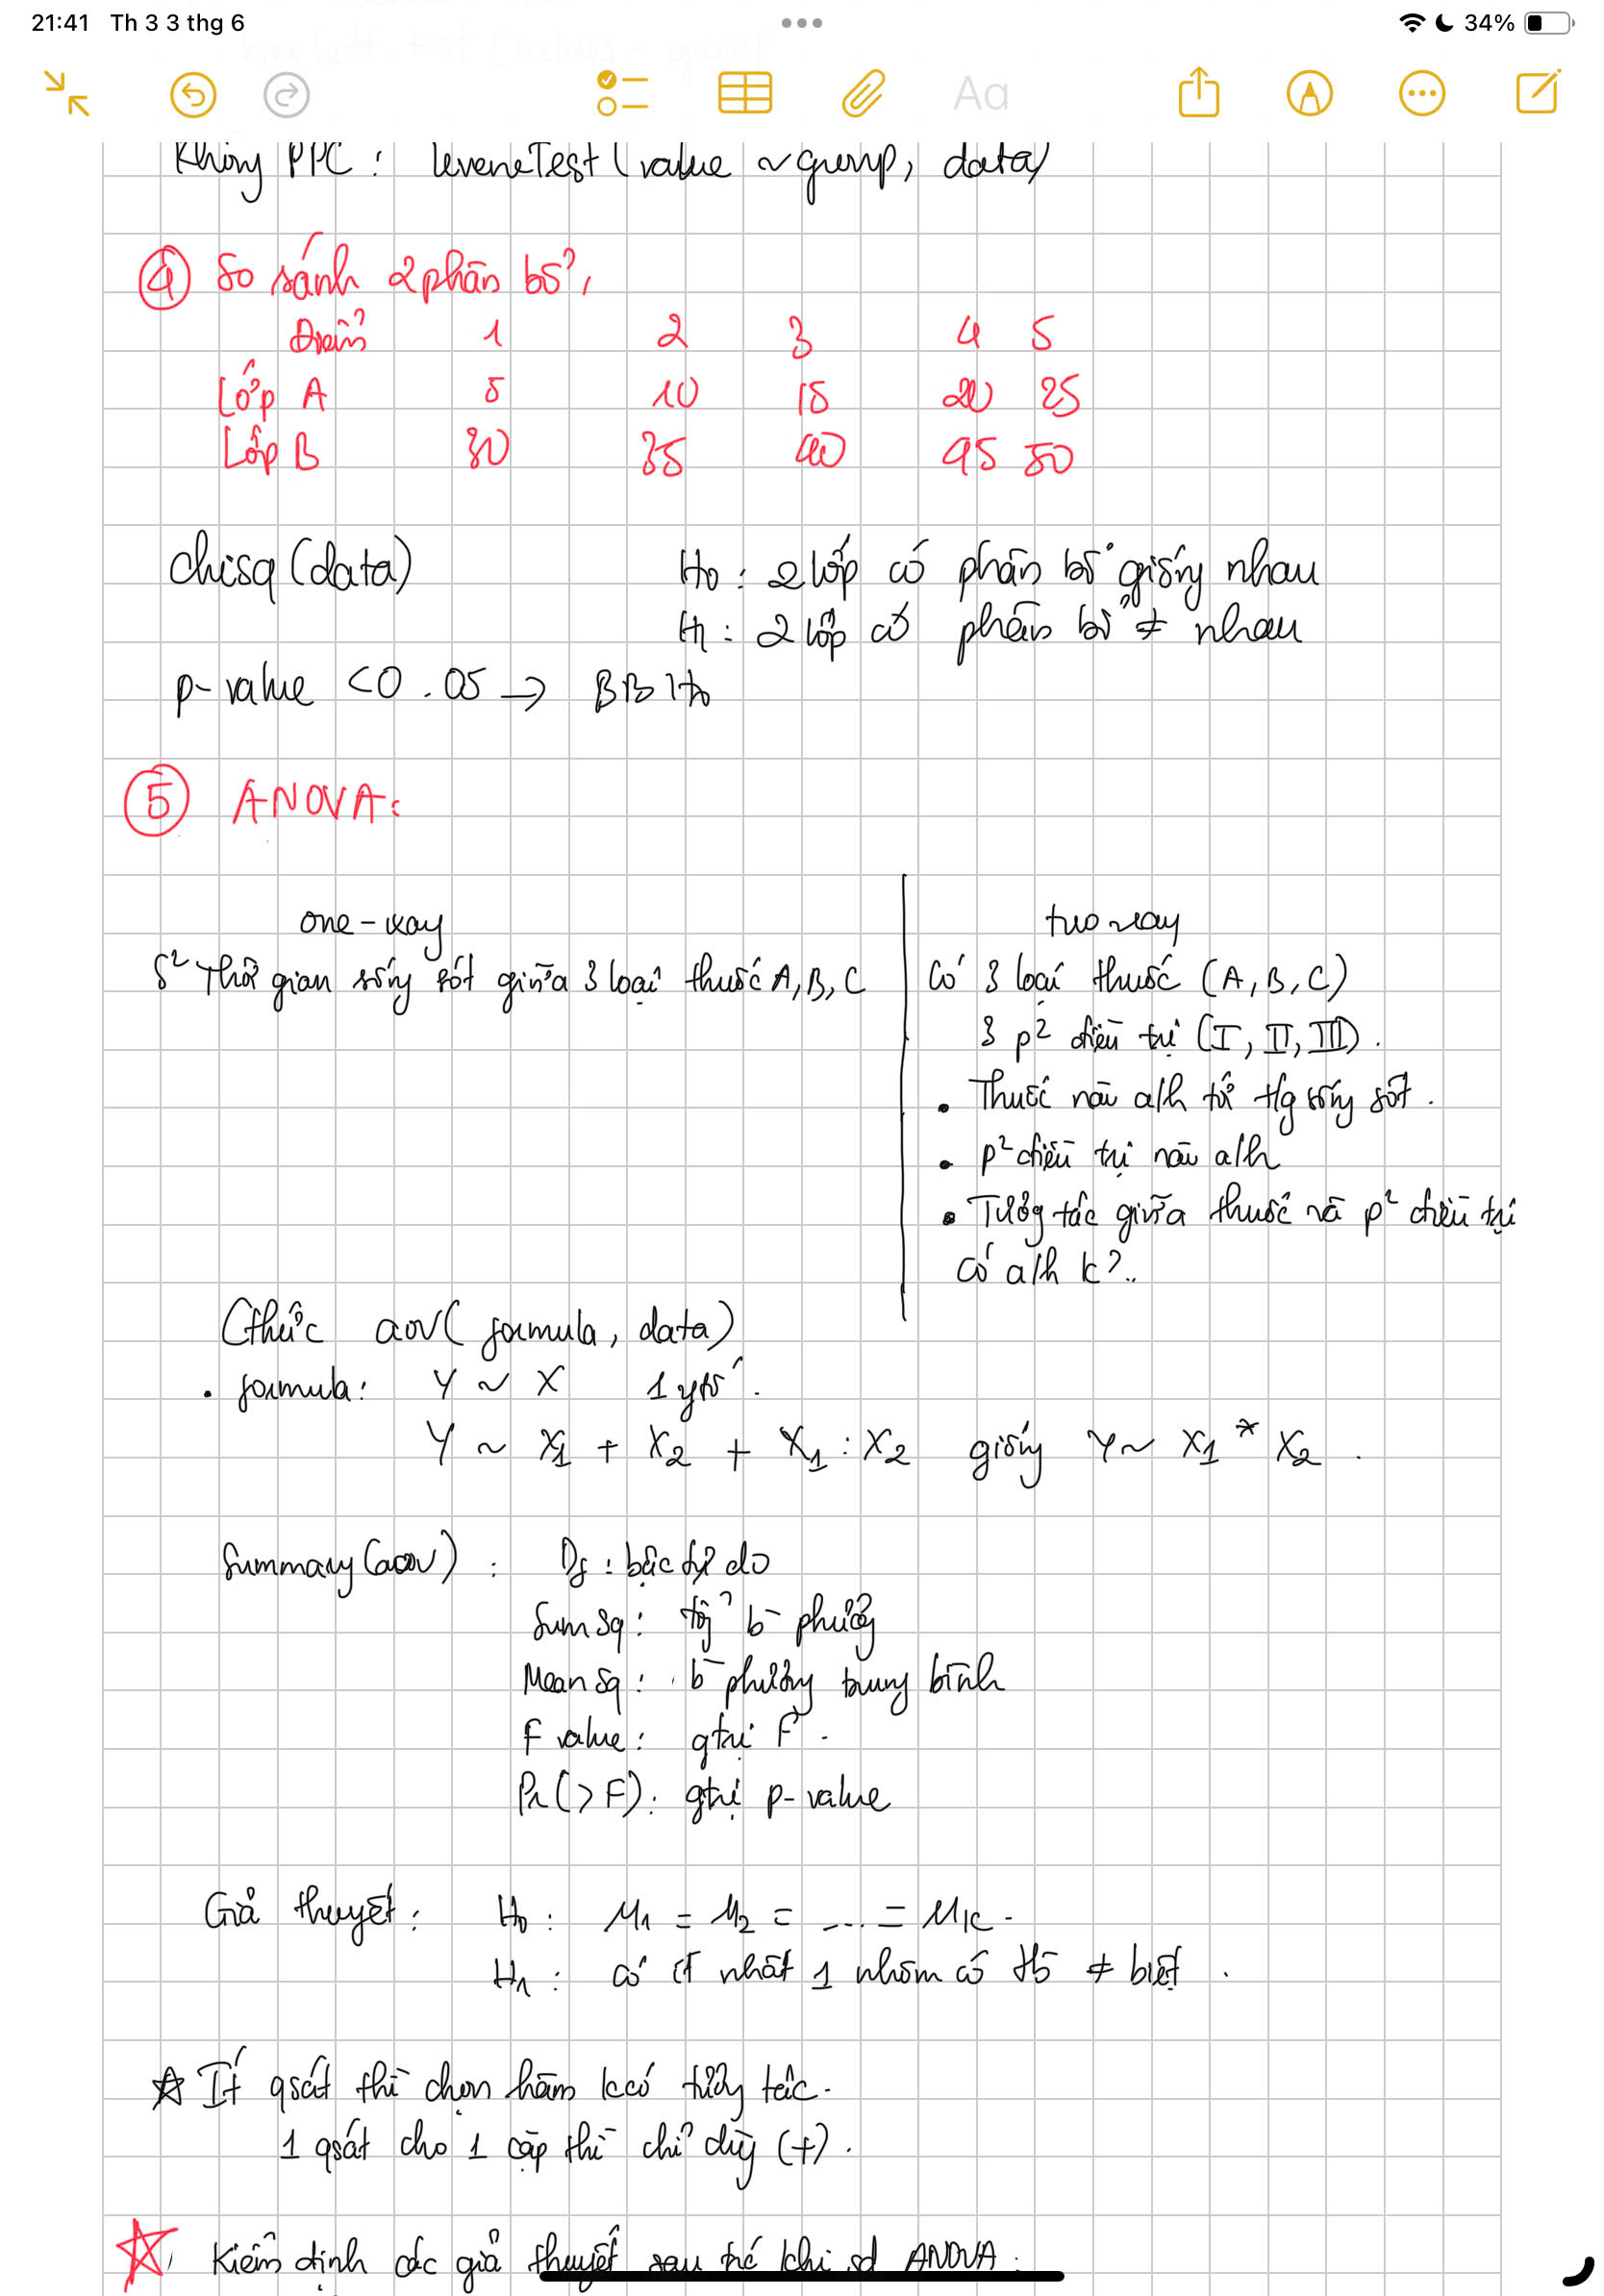 21:41 Th 3 3 thg 6
34%
Aa
Không PPC: leveneTest (value ~ group, data)
④ So sánh 2 phân bố,
Điểm 1 2 3 4 5
Lớp A 5 10 15 20 25
Lớp B 30 35 40 45 50
chisq (data)
H0 : 2 lớp có phân bố giống nhau
H1 : 2 lớp có phân bố ≠ nhau
p-value < 0.05 → BB H0
⑤ ANOVA:
one-way
S² Thời gian sống sót giữa 3 loại thuốc A, B, C
two way
Có 3 loại thuốc (A, B, C)
3 p² điều trị (I, II, III).
• Thuốc nào a/h tới tg sống sót.
• p² điều trị nào a/h
• Tương tác giữa thuốc và p² điều trị
có a/h k?..
Cthức aov( formula, data)
• formula: Y ~ X 1 ytố.
Y ~ X1 + X2 + X1 : X2 giống Y ~ X1 * X2 .
Summary (aov) : Df : bậc tự do
Sum Sq: tổg b` phươg
Mean Sq: b` phương trung bình
F value: gtrị F.
Pr(>F): gtrị p-value
Giả thuyết: H0 : μ1 = μ2 = .... = μk.
H1 : có ít nhất 1 nhóm có tb ≠ biệt .
☆ Ít qsát thì chọn hàm k có tương tác.
1 qsát cho 1 cặp thì chỉ dùg (+).
☆, Kiểm định các giả thuyết sau trc khi sd ANOVA: